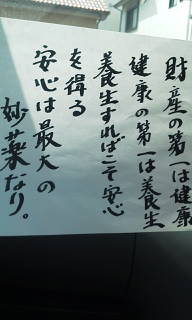 財産の第一は健康
健康の第一は養生
養生すればこそ安心
を得る
安心は最大の
妙薬なり。